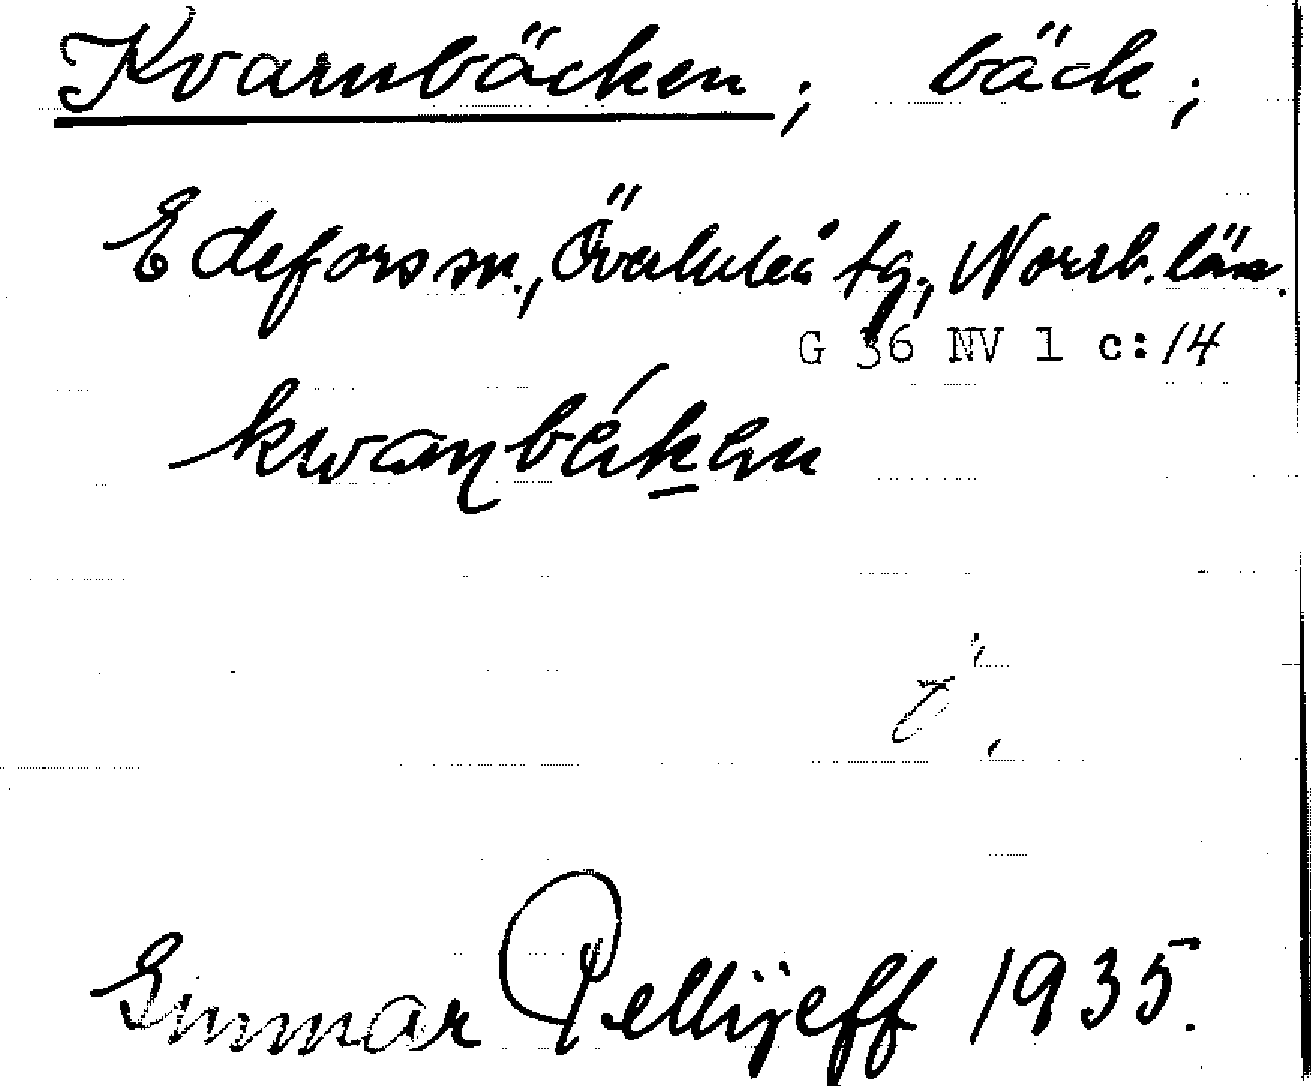 Kvarnbäcken; bäck;
Edefors sn., Överluleå tg., Norrb. län.
G 36 NV 1 c:14
Gunnar Pellijeff 1935.